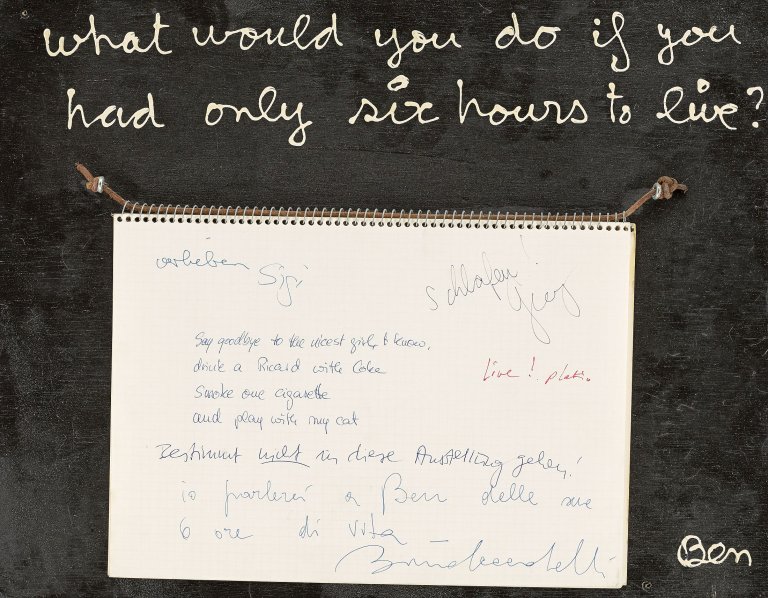 what would you do if you
had only six hours to live?
verlieben Sigi
schlafen!
Say goodbye to the nicest girls I know,
drink a Ricard with Coke
Smoke one cigarette
and play with my cat
Live!
Bestimmt nicht in diese Ausstellung gehen!
io parlerei a Ben delle sue
6 ore di vita
Ben